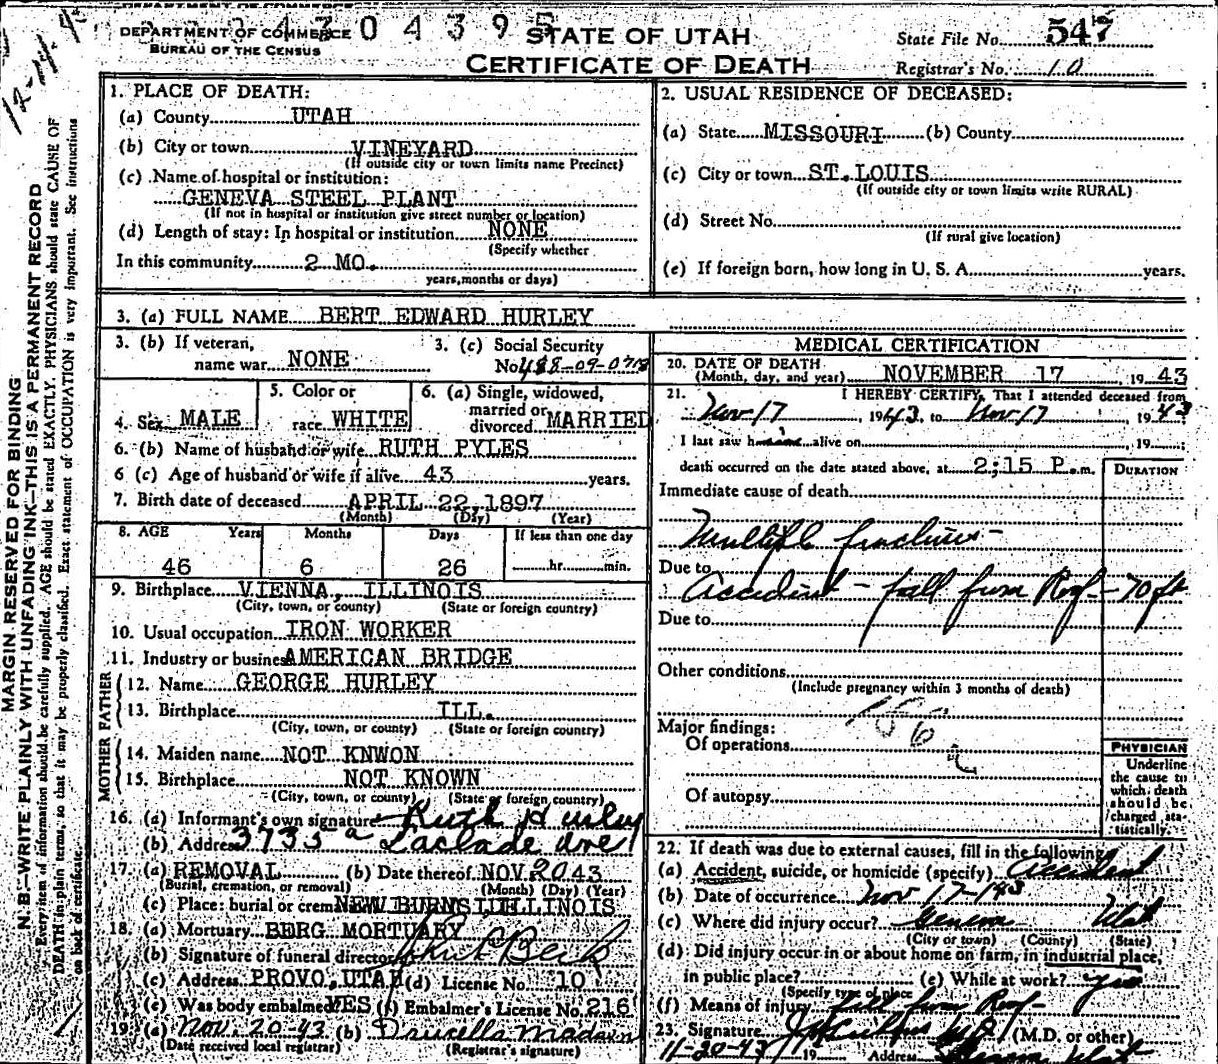 DEPARTMENT OF COMMERCE
BUREAU OF THE CENSUS
04395
STATE OF UTAH
CERTIFICATE OF DEATH
State File No. 547
Registrar's No. 10
MARGIN RESERVED FOR BINDING
N. B.—WRITE PLAINLY WITH UNFADING INK—THIS IS A PERMANENT RECORD
Every item of information should be carefully supplied. AGE should be stated EXACTLY. PHYSICIANS should state CAUSE OF
DEATH in plain terms, so that it may be properly classified. Exact statement of OCCUPATION is very important. See instructions
on back of certificate.
1. PLACE OF DEATH:
(a) County UTAH
(b) City or town VINEYARD
(If outside city or town limits name Precinct)
(c) Name of hospital or institution:
GENEVA STEEL PLANT
(If not in hospital or institution give street number or location)
(d) Length of stay: In hospital or institution NONE
(Specify whether
In this community 2 MO.
years, months or days)
2. USUAL RESIDENCE OF DECEASED:
(a) State MISSOURI (b) County
(c) City or town ST. LOUIS
(If outside city or town limits write RURAL)
(d) Street No.
(If rural give location)
(e) If foreign born, how long in U. S. A. years.
3. (a) FULL NAME BERT EDWARD HURLEY
3. (b) If veteran, name war NONE
3. (c) Social Security No. 488-09-0718
4. Sex MALE
5. Color or race WHITE
6. (a) Single, widowed, married or divorced MARRIED
6. (b) Name of husband or wife RUTH PYLES
6 (c) Age of husband or wife if alive 43 years.
7. Birth date of deceased APRIL 22, 1897
(Month) (Day) (Year)
8. AGE Years Months Days If less than one day
46 6 26 hr. min.
9. Birthplace VIENNA, ILLINOIS
(City, town, or county) (State or foreign country)
10. Usual occupation IRON WORKER
11. Industry or business AMERICAN BRIDGE
FATHER
12. Name GEORGE HURLEY
13. Birthplace ILL.
(City, town, or county) (State or foreign country)
MOTHER
14. Maiden name NOT KNWON
15. Birthplace NOT KNOWN
(City, town, or county) (State or foreign country)
16. (a) Informant's own signature Ruth Hurley
(b) Address 3735 a Laclade ave
17. (a) REMOVAL (b) Date thereof NOV. 20 43
(Burial, cremation, or removal) (Month) (Day) (Year)
(c) Place: burial or crem NEW BURNSIDE ILLINOIS
18. (a) Mortuary BERG MORTUARY
(b) Signature of funeral director
(c) Address PROVO, UTAH (d) License No. 10
(e) Was body embalmed YES (f) Embalmer's License No. 216
19. (a) Nov. 20-43 (b) Drucella
(Date received local registrar) (Registrar's signature)
MEDICAL CERTIFICATION
20. DATE OF DEATH
(Month, day, and year) NOVEMBER 17, 1943
21. I HEREBY CERTIFY, That I attended deceased from
Nov 17 1943, to Nov 17 1943
I last saw h alive on 19
death occurred on the date stated above, at 2:15 P.m.
DURATION
Immediate cause of death
Multiple fractures-
Due to
Accident - fall from Roof - 70 ft
Due to
Other conditions
(Include pregnancy within 3 months of death)
Major findings:
Of operations
Of autopsy
PHYSICIAN
Underline
the cause to
which death
should be
charged sta-
tistically.
22. If death was due to external causes, fill in the following:
(a) Accident, suicide, or homicide (specify) Accident
(b) Date of occurrence Nov 17-1943
(c) Where did injury occur? Geneva Utah
(City or town) (County) (State)
(d) Did injury occur in or about home on farm, in industrial place,
in public place? (e) While at work? yes
(Specify type of place
(f) Means of injury Fell from Roof-
23. Signature (M.D. or other)
11-20-43 19 Address Geneva Utah